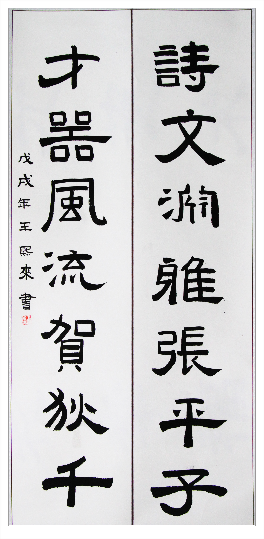 詩文淵雅張平子
才器風流賀狄千
戊戌年王熙來書